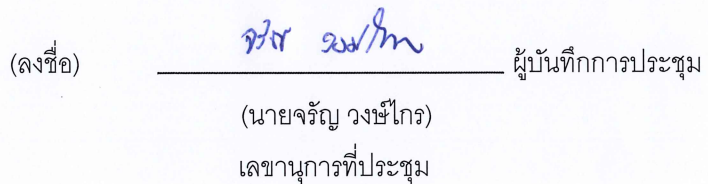 (ลงชื่อ) จรัญ วงษ์ไกร ผู้บันทึกการประชุม
(นายจรัญ วงษ์ไกร)
เลขานุการที่ประชุม